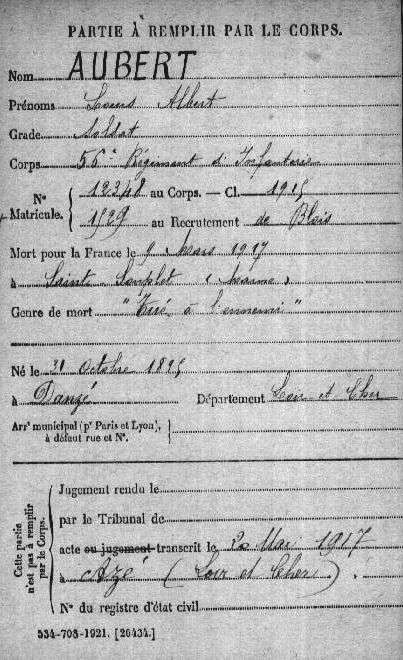 PARTIE À REMPLIR PAR LE CORPS.
Nom AUBERT
Prénoms Louis Albert
Grade Soldat
Corps 56e Régiment d'Infanterie
N° Matricule. { 12348 au Corps. — Cl. 1915
1529 au Recrutement de Blois
Mort pour la France le 9 Mars 1917
à Saint-Souplet (Marne)
Genre de mort "Tué à l'ennemi"
Né le 21 Octobre 1895
à Danzé Département Loir et Cher
Arrt municipal (pr Paris et Lyon), à défaut rue et N°.
Cette partie n'est pas à remplir par le Corps.
Jugement rendu le
par le Tribunal de
acte ou jugement transcrit le 20 Mai 1917
à Azé (Loir et Cher)
N° du registre d'état civil
534-708-1921. [26434.]